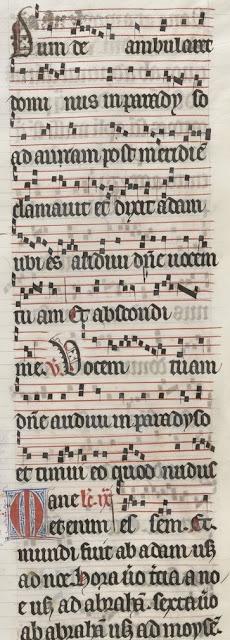 Dum de ambularet
domi nus in parady so
ad auram post meridiē
clamavit et dixit adam
ubi es audivi dn̄e vocem
tu am Et abscondi
me. v̄. Vocem tuam
dn̄e audivi in paradyso
et timui eo quod nudus
Mane
etenim es sem. Et.
mundi fuit ab adam usq̄
ad noe. hora v̄o tercia a no
e usq̄ ad abrahā. sexta v̄o
ab abrahā usq̄ ad moysē.